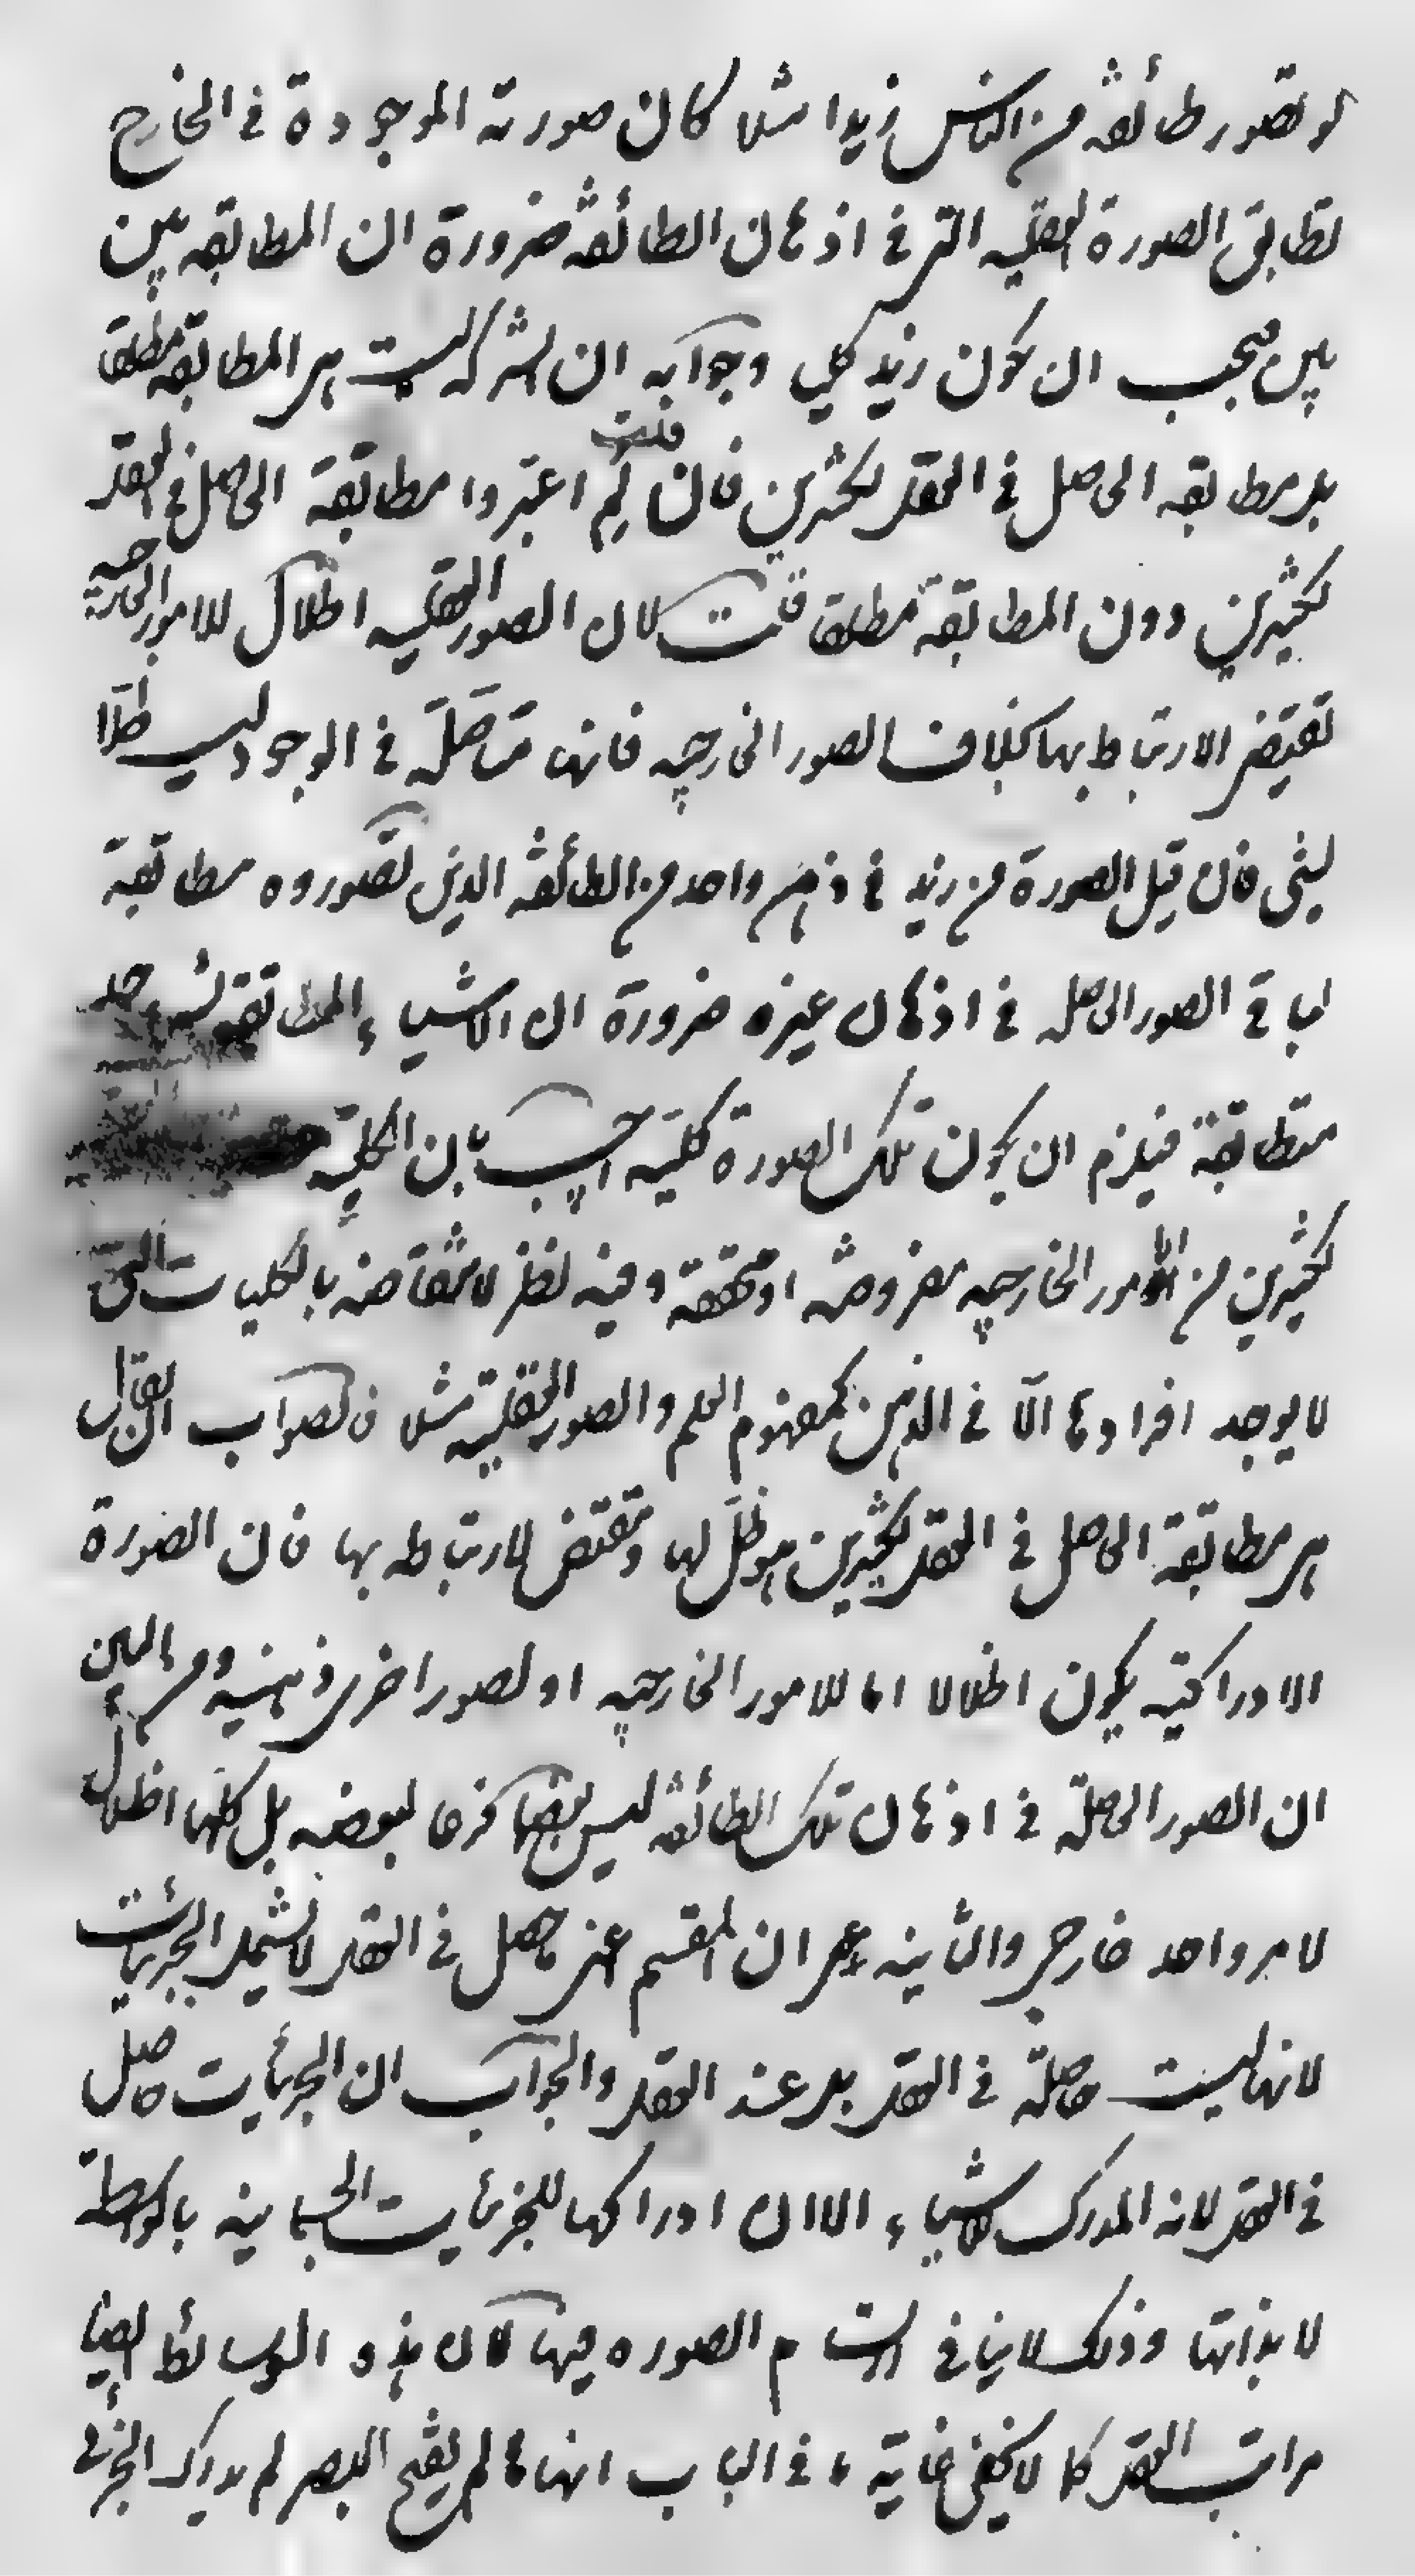 لو تصور طائفة من الناس زيدا مثلا كان صورته الموجودة في الخارج
تطابق الصورة العقلية التي في اذهان الطائفة ضرورة ان المطابقة بين
بين فيجب ان يكون زيد كلي وجوابه ان الشركة ليست هي المطابقة مطلقا
بل مطابقة الحاصل في العقل لكثيرين فان قلت لم اعتبروا مطابقة الحاصل في العقل
لكثيرين دون المطابقة مطلقا قلت لان الصور العقلية اظلال للامور الخارجية
تقتضي الارتباط بها بخلاف الصور الخارجية فانها متاصلة في الوجود ليس ظلا
لشئ فان قيل الصورة من زيد في ذهن واحد من الطائفة الذين تصوروه مطابقة
لباقي الصور الحاصلة في اذهان غيره ضرورة ان الاشياء المطابقة لشئ واحد
متطابقة فيلزم ان يكون تلك الصورة كلية اجيب بان الكلية
لكثيرين من الامور الخارجية مفروضة او محققة وفيه نظر لانتقاضه بالكليات التي
لا يوجد افرادها الا في الذهن كمفهوم العلم والصور العقلية مثلا فالصواب ان يقال
هي مطابقة الحاصل في العقل لكثيرين هو ظل لها ومقتض لارتباطه بها فان الصورة
الادراكية يكون اظلالا اما للامور الخارجية او لصور اخرى ذهنية ومن البين
ان الصور الحاصلة في اذهان تلك الطائفة ليس بعضها فرعا لبعض بل كلها اظلال
لامر واحد خارجي والثانية هي ان المقسم اعني ما حصل في العقل لا يشمل الجزئيات
لانها ليست حاصلة في العقل بل عند العقل والجواب ان الجزئيات حاصل
في العقل لانه المدرك للاشياء الا ان ادراكها للجزئيات الجسمانية بالواسطة
لا بذاتها وذلك لا ينافي ارتسام الصورة فيها لان هذه الوسائط ايضا
مراتب العقل كما لا يخفى غاية ما في الباب انها ما لم يفتح البصر لم يدرك الجزئي